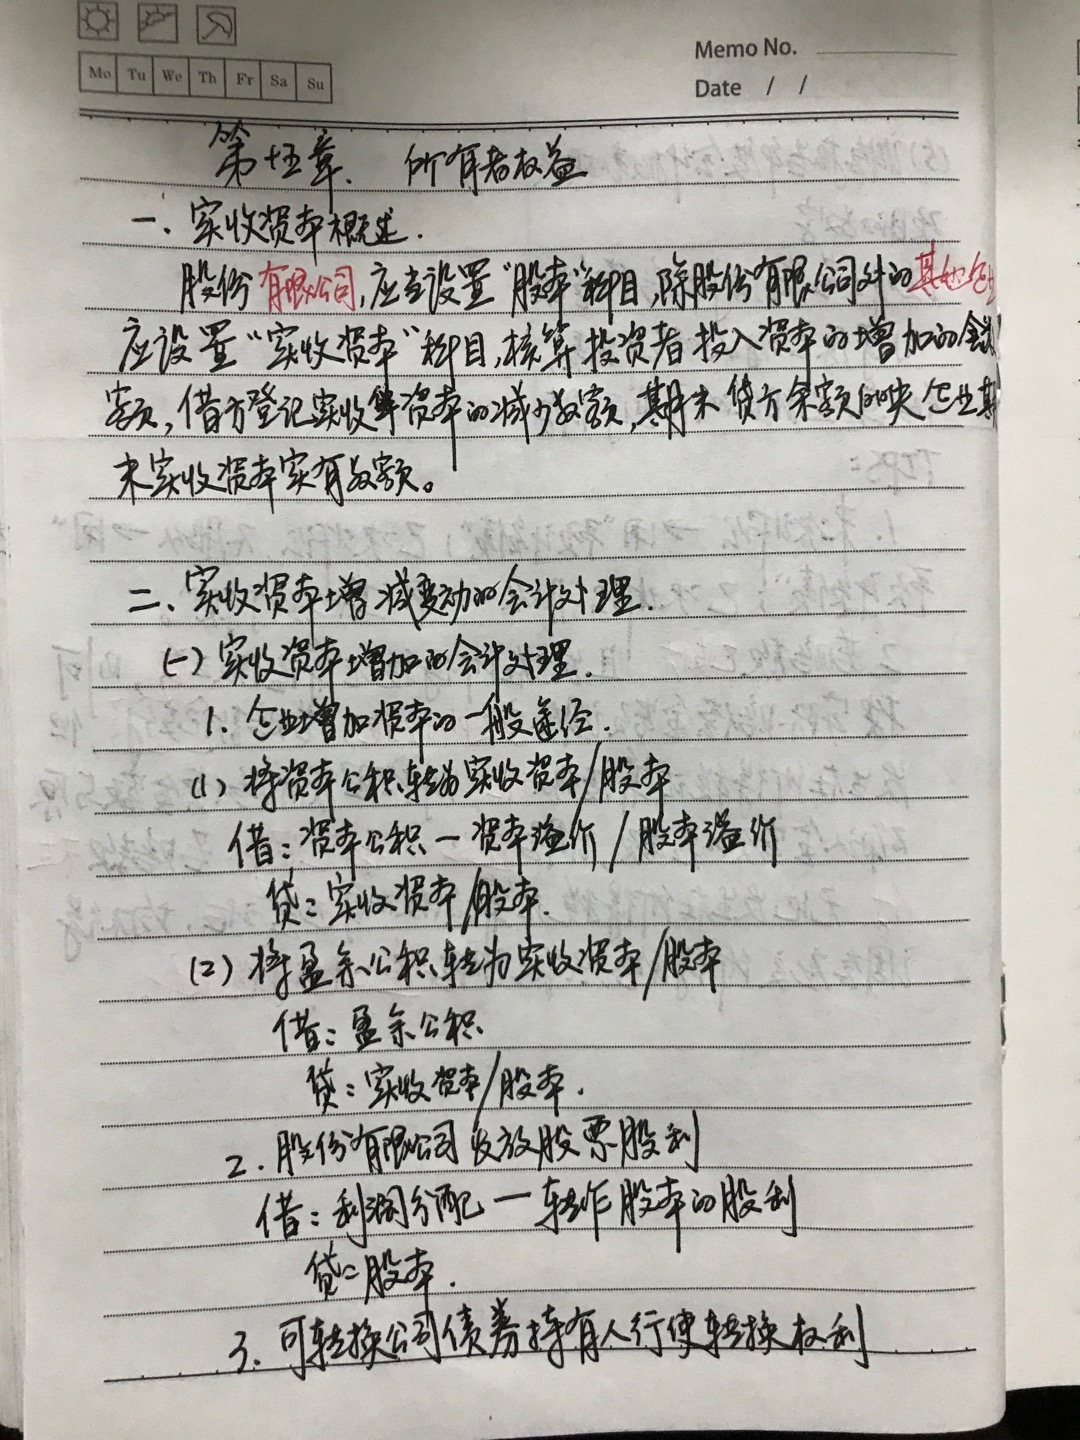 Mo Tu We Th Fr Sa Su
Memo No.
Date / /
第十五章、所有者权益
一、实收资本概述.
股份有限公司,应当设置“股本”科目,除股份有限公司外的其他企
应设置“实收资本”科目,核算投资者投入资本的增加的金
额,借方登记实收资本的减少数额,期末贷方余额反映企业期
末实收资本实有数额。
二、实收资本增减变动的会计处理.
(一)实收资本增加的会计处理.
1. 企业增加资本的一般途径.
(1) 将资本公积转为实收资本/股本
借:资本公积—资本溢价/股本溢价
贷:实收资本/股本.
(2) 将盈余公积转为实收资本/股本
借:盈余公积
贷:实收资本/股本.
2. 股份有限公司发放股票股利
借:利润分配—转作股本的股利
贷:股本.
3. 可转换公司债券持有人行使转换权利